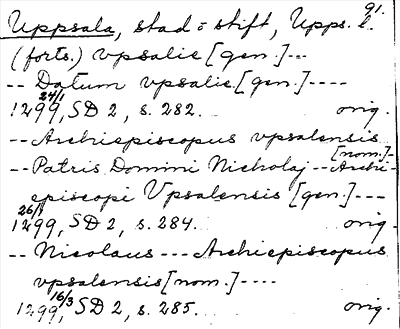 91.
Uppsala, stad o stift, Upps. l.
(forts.) vpsalie [gen.]--
-- Datum vpsalie [gen.] ----
1299 24/1, SD 2, s. 282. orig.
-- Archiepiscopus vpsalensis [nom.]--
-- Patris Domini Nicholaj -- Archi-
episcopi Vpsalensis [gen.] ---
1299 26/1, SD 2, s. 284. orig.
-- Nicolaus --- Archiepiscopus
vpsalensis [nom.] ----
1299 16/3, SD 2, s. 285. orig.